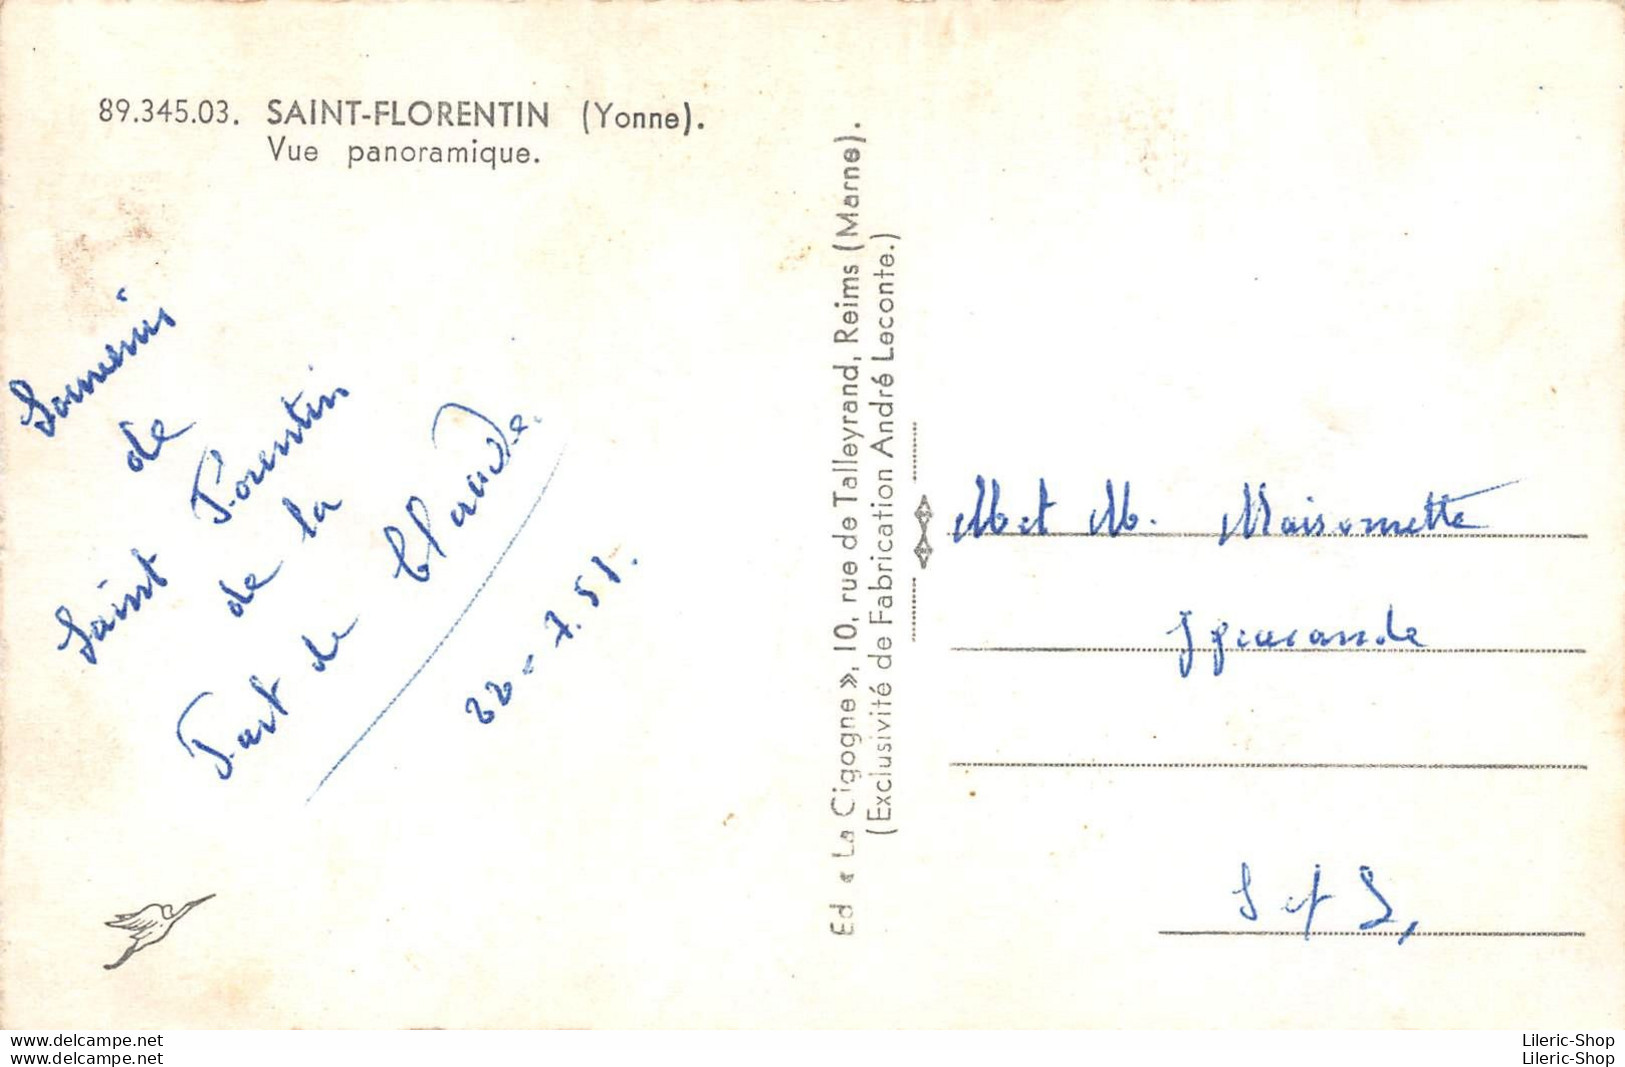 89.345.03. SAINT-FLORENTIN (Yonne).
Vue panoramique.
Souvenir
de
Saint Florentin
de la
Part de Claude.
22-7.51.
Ed « La Cigogne », 10, rue de Talleyrand, Reims (Marne).
(Exclusivité de Fabrication André Leconte.)
M et M. Maisonnette
Iguerande
S et L,
delcampe.net
delcampe.net
Lileric-Shop
Lileric-Shop